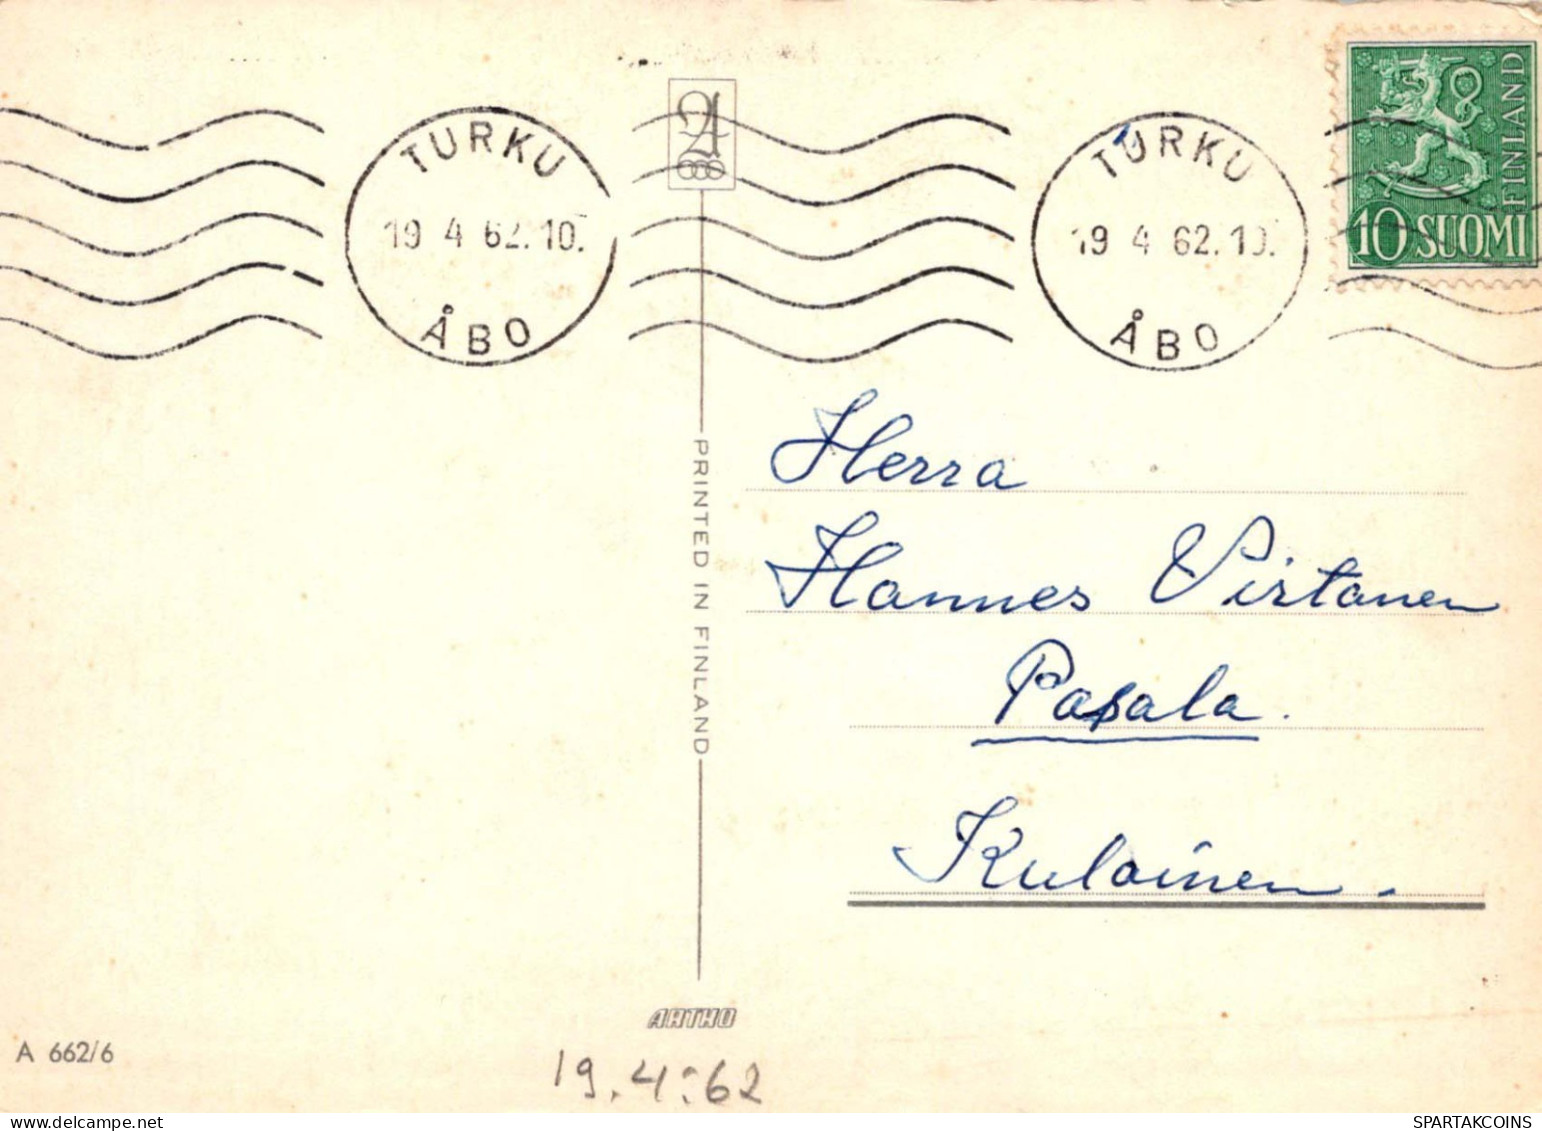 TURKU
19 4 62.10.
ÅBO
TURKU
19 4 62.10.
ÅBO
FINLAND
10 SUOMI
PRINTED IN FINLAND
Herra
Hannes Virtanen
Pasala.
Kulainen.
ARTKO
A 662/6
19.4.:62
SPARTAKCOINS